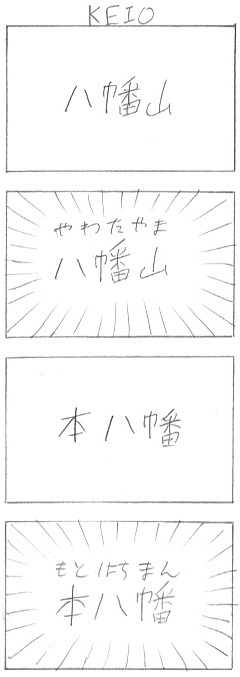 KEIO
八幡山
やわたやま
八幡山
本八幡
もとはちまん
本八幡